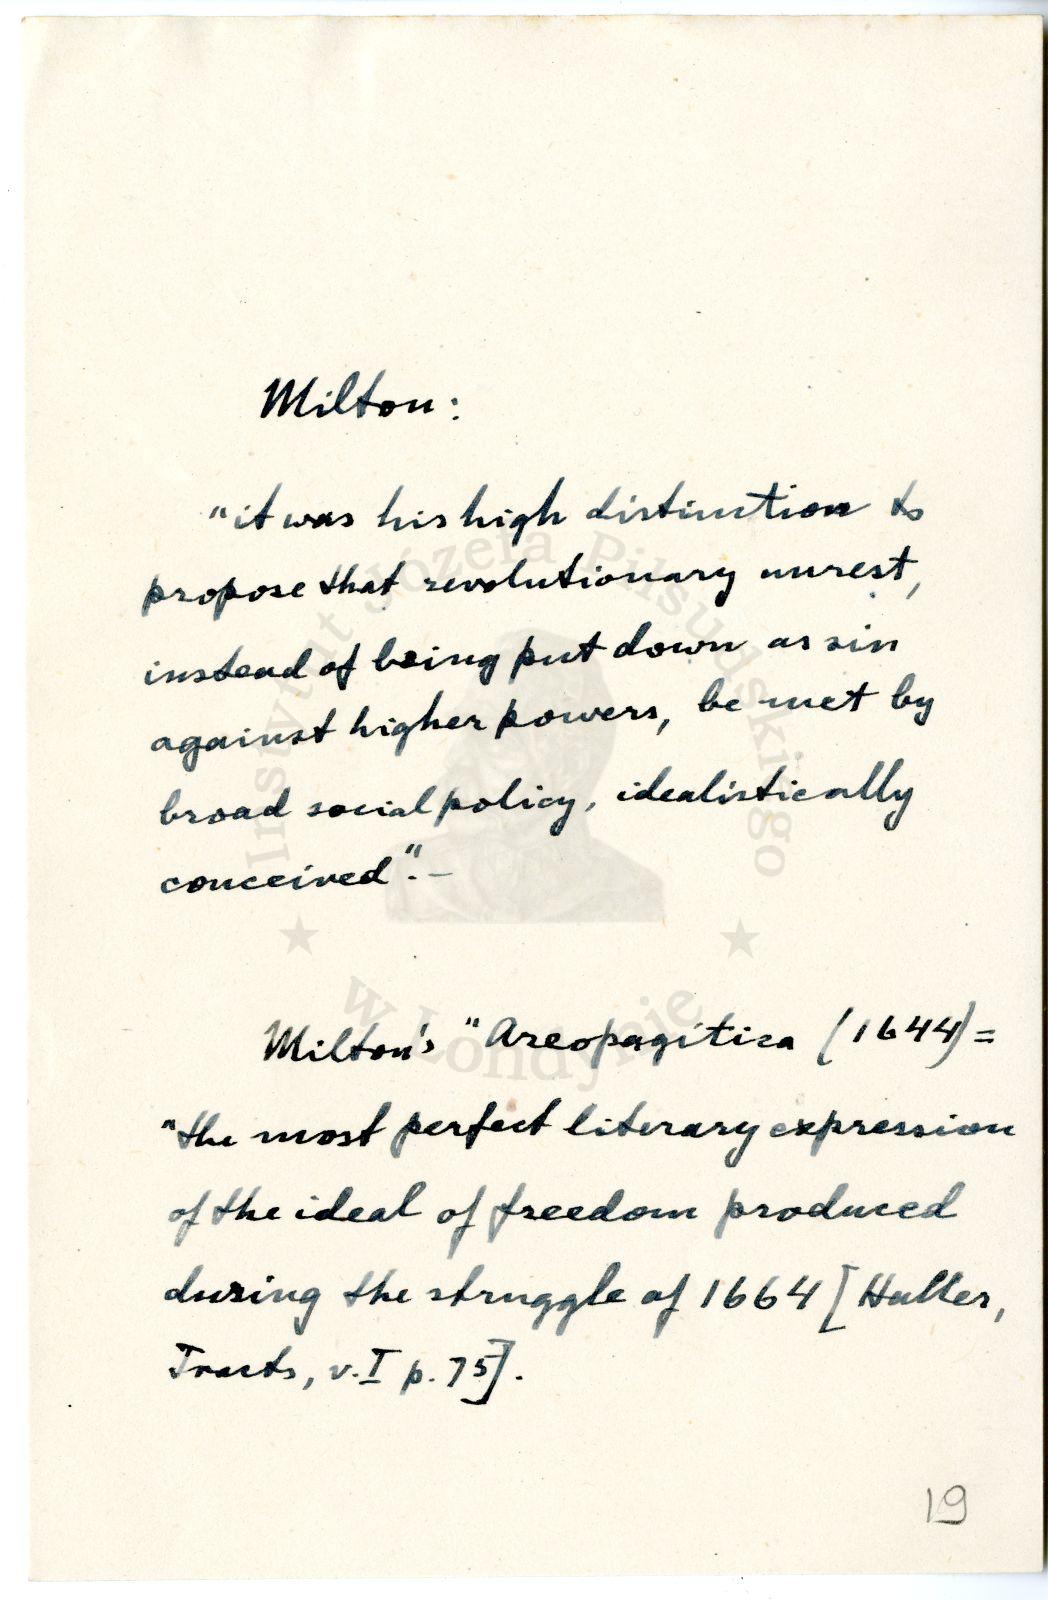 Milton:
"it was his high distinction to
propose that revolutionary unrest,
instead of being put down as sin
against higher powers, be met by
broad social policy, idealistically
conceived".-
Milton's "Areopagitica (1644) =
"the most perfect literary expression
of the ideal of freedom produced
during the struggle of 1664 [Haller,
Tracts, v. I p. 75].
19
Instytut Józefa Piłsudskiego
w Londynie